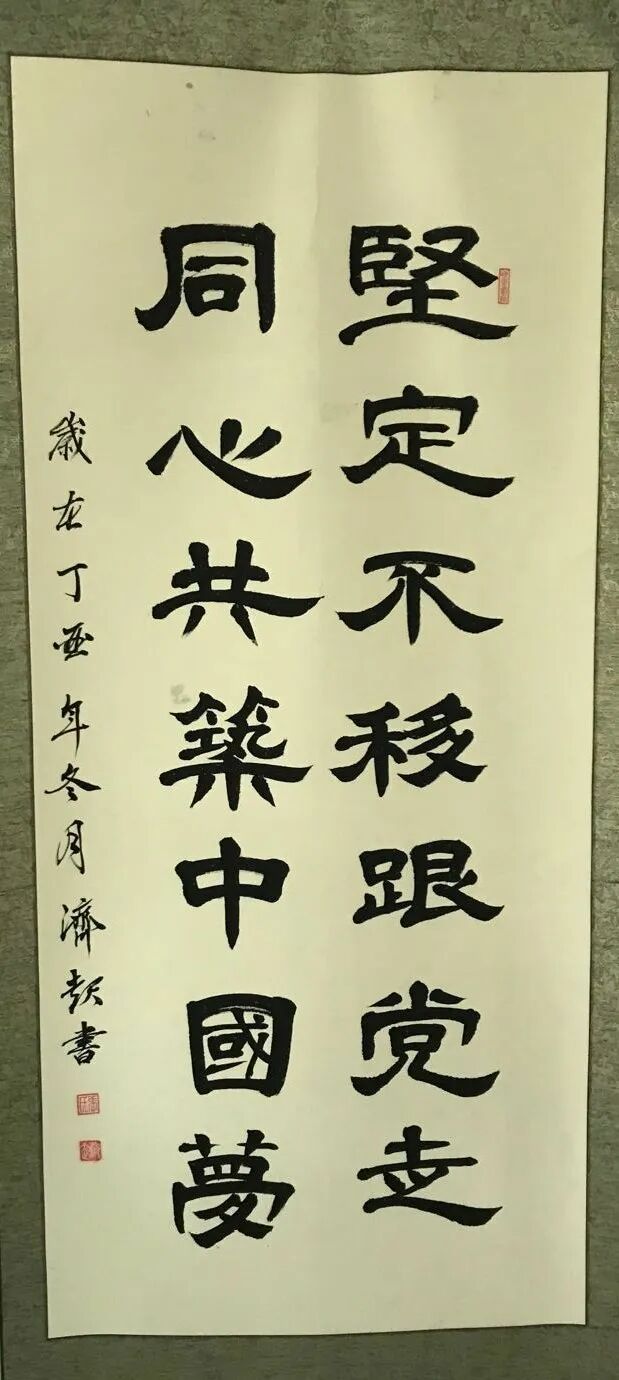 堅定不移跟党走
同心共築中國夢
歲在丁酉年冬月濟懿書